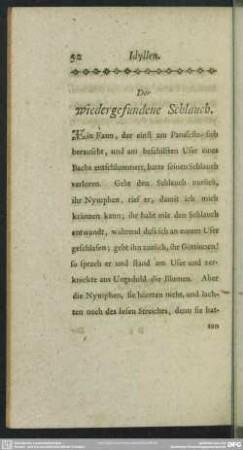 52 Idyllen.
Der
wiedergefundene Schlauch.
Ein Faun, der einst am Panusfeste sich
berauscht, und am beschilften Ufer eines
Bachs entschlummert, hatte seinen Schlauch
verloren. Gebt den Schlauch zurück,
ihr Nymphen, rief er, damit ich mich
kränzen kann; ihr habt mir den Schlauch
entwandt, während daß ich an eurem Ufer
geschlafen; gebt ihn zurück, ihr Göttinnen!
so sprach er und stand am Ufer und zer-
knickte aus Ungeduld die Blumen. Aber
die Nymphen, sie hörten nicht, und lach-
ten noch des losen Streiches, denn sie hat-
ten